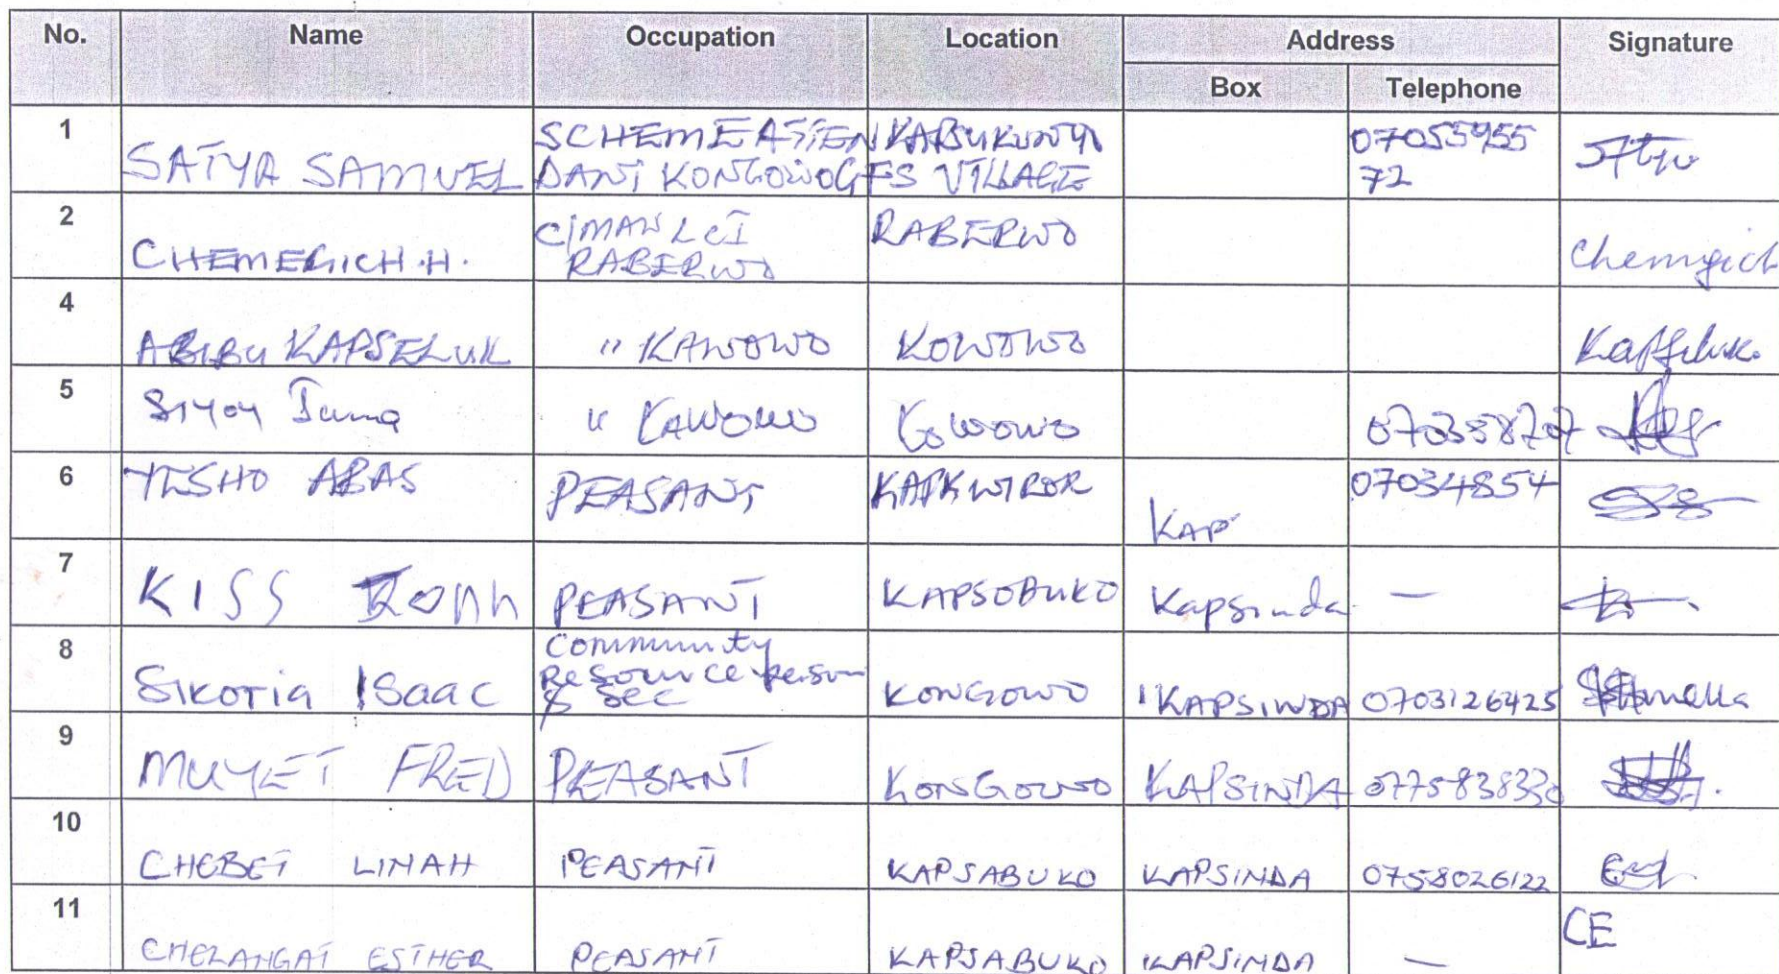 No. Name Occupation Location Address Signature
Box Telephone
1 SATYA SAMUEL SCHEME ATTEN KABUKUNYA 07055955
DANT KONGOWOG ES VILLAGE 72
2 CHEMERICH.H. C/MAN LCI RABERWO Chemgich
RABERWO
4 ABIBU KAPSELUK " KAWOWO KOWOWO Kapseluk
5 Siyoy Juma " KAWOWO Kowowo 070358707
6 YESHO ABAS PEASANT KAPKWIROR KAP 070348554
7 KISS PEASANT KAPSOBUKO Kapsinda —
8 Sikoria Isaac Community
Resource person
& Sec KONGOWO KAPSINDA 0703126425
9 MUYET FRED PEASANT KONGOWO KAPSINDA 0775838330
10 CHEBET LINAH PEASANT KAPSABUKO KAPSINDA 0758026122
11 CHELANGAT ESTHER PEASANT KAPSABUKO KAPSINDA — CE